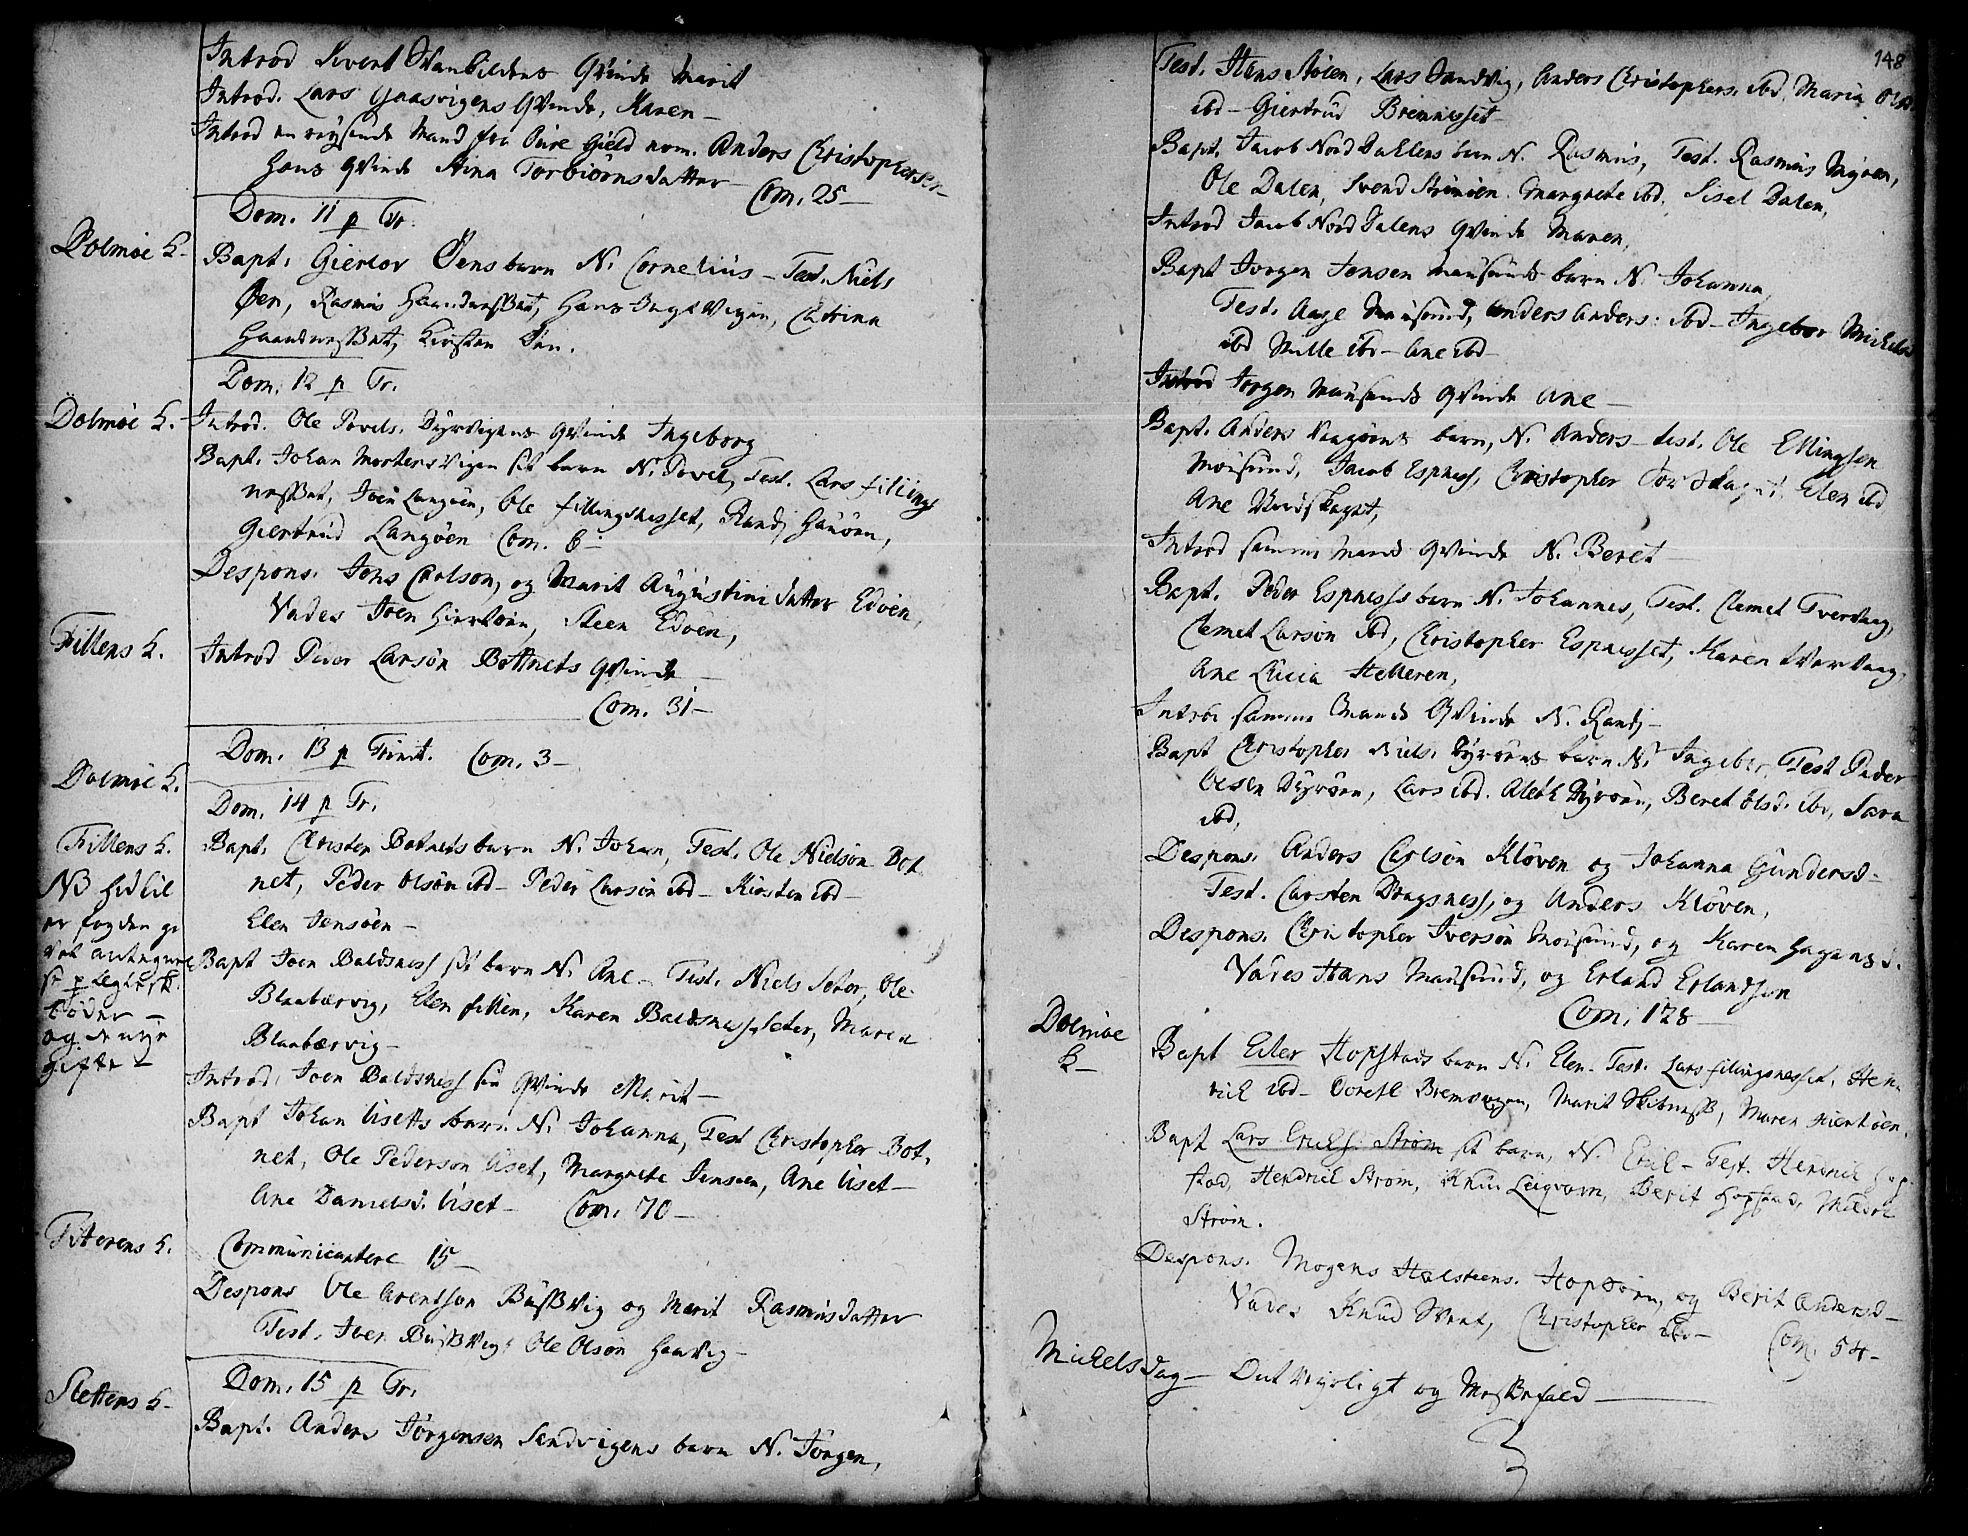 Introd Sivert Svanbildens Qvinde Marit
Introd. Lars Gaasvigens Qvinde, Karen –
Introd en reysende Mand fra Øure Gield nom. Anders Christophersen
hans Qvinde Stina Torbiørns datter – Com. 25 –
Dom. 11 p Tr.
Dolmøe K.
Bapt. Giertor Øens barn N. Cornelius – Test. Niels
Øen, Rasmus Haandnesset, Hans Vigen, Catrina
Haandnesset, Kirsten Øen.
Dom. 12 p Tr.
Dolmøe K.
Introd. Ole Povels. Dyrvigens Qvinde Ingeborg
Bapt. Johan Mortens Vigen sit barn N. Povel, Test. Lars fillings
nesset, Joen Langøen, Ole fillingsnesset, Randj
Giertrud Langøen Com. 6 –
Despons. Jens Carlson, og Marit Augustini datter Edøen,
Vades Joen Hiertøen, Steen Edøen,
Fillens K.
Introd Peder Larsøn Bottnets Qvinde –
Com. 31 –
Dom. 13 p Trinit. Com. 3 –
Dolmøe K.
Dom. 14 p Tr.
Fillens K.
Bapt. Christen Botnets barn N. Johan, Test. Ole Nielsøn Bot
net, Peder Olsøn ibd – Peder Larsøn ibd – Kirsten ibd –
Elen Jensøen –
NB hidtil
er fogden gi
vet
bøder –
og de nye
gifte –
Bapt Joen Baldsness sit barn N. Ane – Test. Niels Seter, Ole
Blaabærvig, Elen fillen, Karen Baldsness seter, Maren
Blaabærvig –
Introd. Joen Baldsness sin Qvinde Marit –
Bapt Johan Usetts barn N. Johanna, Test Christopher Bot.
net, Ole Pederson Uset, Margrete Jensøen, Ane Uset –
Ane Danielsd. Uset – Com. 70 –
Communicantere 15 –
Despons Ole Arentson Bussvig og Marit Rasmusdatter
Test. Iver Bussvig, Ole Olsøn Haavig –
Dom. 15 p Tr.
Slettens K.
Bapt. Anders Jørgensen Sandvigens barn N. Jørgen,
148
Test. Hans Stølen, Lars Sandvig, Anders Christophers. ibd, Maria Olsd
ibd – Giertrud Bremnesset
Bapt. Jacob Nord Dahlens barn N. Rasmus, Test. Rasmus Myren,
Ole Dalen, Svend Strømøen. Margrete ibd, Sisel Dalen,
Introd Jacob Nord Dalens Qvinde Maren,
Bapt Jorgen Jensen Mausunds barn N. Johanna,
Test. Aage Mausund, Anders Anders. ibd – Ingebor Michels
ibd Mille ibd – Ane ibd –
Introd Jorgen Mausunds Qvinde Ane –
Bapt. Anders Vaagøens barn, N. Anders – test. Ole Ellingsen
Mousund, Jacob Espness, Christopher Elen ibd
Ane
Introd samme Mands Qvinde N. Beret –
Bapt. Peder Espness barn N. Johannes, Test. Clemet Tverdaag,
Clemet Larsøn ibd, Christopher Espnesset, Karen
Ane Lucia Helleren,
Introd samme Mands Qvinde N. Randj –
Bapt Christopher Niels. Dyrøens barn N. Ingebor, Test Peder
Olsen Dyrøen, Lars ibd. Aleth Dyrøen, Beret Olsd. ibd, Sara
ibd,
Despons. Anders Carlsøn Kløven og Johanna Gundersd –
Test. Carsten Vragsness, og Anders Kløven,
Despons. Christopher Iversøn Mousund, og Karen Hagensd.
Vades Hans Mausund, og Erland Erlandsen
Com. 128 –
Dolmøe
K –
Bapt Eiler Hopstads barn N. Elen – Test. Lars fillingsnesset, Hen
rich ibd – Dorethe Bremvogen, Marit Skibness, Maren Hiertøen.
Bapt Lars Erichs. Strøm sit barn, N. Erik – Test. Hendrich Hop
stad, Hendrich Strøm, Knud Berit Hopstad,
Strøm.
Despons. Mogens Halsteens. Hopøen, og Berit Andersd –
Vades Knud Christopher ibd –
Com. 54 –
Michels Dag – Ont Veyrligt og Messefald –